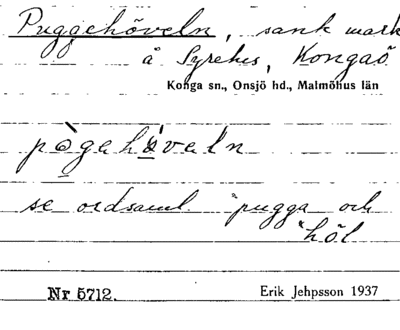 Puggehöveln, sank mark
å Syrehus, Kongaö
Konga sn., Onsjö hd., Malmöhus län
pògahö̀veln
se ordsaml. "pugga och
"höl
Nr 5712. Erik Jehpsson 1937